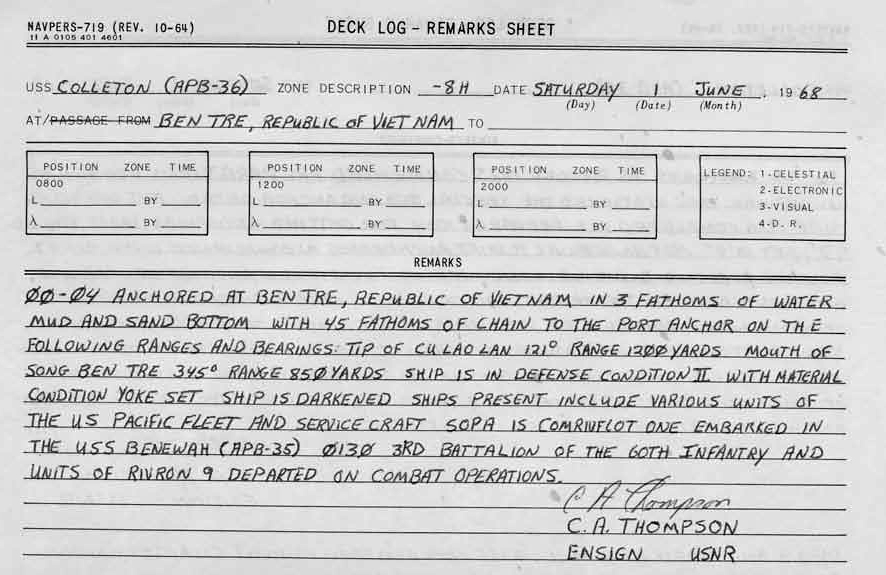 NAVPERS-719 (REV. 10-64)
11 A 0105 401 4601
DECK LOG – REMARKS SHEET
USS COLLETON (APB-36) ZONE DESCRIPTION -8H DATE SATURDAY 1 JUNE, 1968
(Day) (Date) (Month)
AT/PASSAGE FROM BEN TRE, REPUBLIC OF VIET NAM TO
POSITION ZONE TIME
0800
L BY
λ BY
POSITION ZONE TIME
1200
L BY
λ BY
POSITION ZONE TIME
2000
L BY
λ BY
LEGEND: 1-CELESTIAL
2-ELECTRONIC
3-VISUAL
4-D. R.
REMARKS
00-04 ANCHORED AT BEN TRE, REPUBLIC OF VIETNAM IN 3 FATHOMS OF WATER
MUD AND SAND BOTTOM WITH 45 FATHOMS OF CHAIN TO THE PORT ANCHOR ON THE
FOLLOWING RANGES AND BEARINGS: TIP OF CU LAO LAN 121° RANGE 1200 YARDS MOUTH OF
SONG BEN TRE 345° RANGE 850 YARDS SHIP IS IN DEFENSE CONDITION II WITH MATERIAL
CONDITION YOKE SET SHIP IS DARKENED SHIPS PRESENT INCLUDE VARIOUS UNITS OF
THE US PACIFIC FLEET AND SERVICE CRAFT SOPA IS COMRIVFLOT ONE EMBARKED IN
THE USS BENEWAH (APB-35) 0130 3RD BATTALION OF THE 60TH INFANTRY AND
UNITS OF RIVRON 9 DEPARTED ON COMBAT OPERATIONS.
C A Thompson
C. A. THOMPSON
ENSIGN USNR